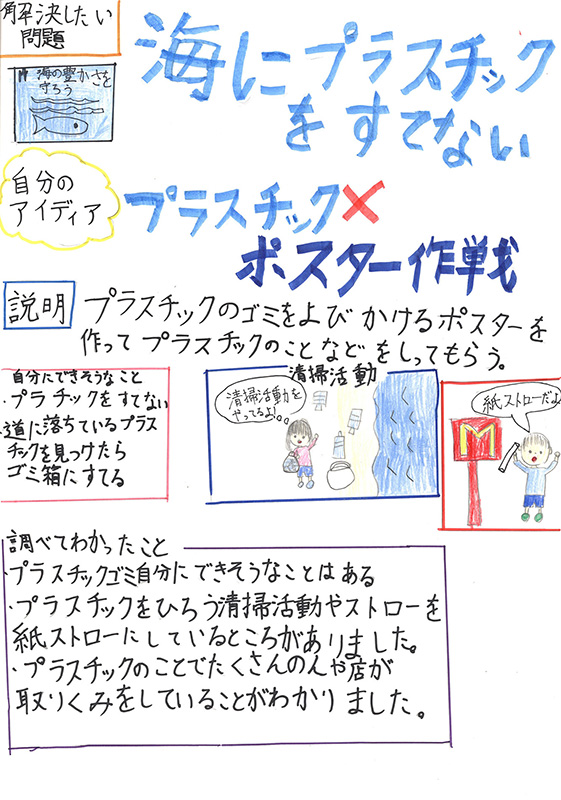 解決したい
問題
海にプラスチック
をすてない
海の豊かさを
守ろう
自分の
アイディア
プラスチック×
ポスター作戦
説明
プラスチックのゴミをよびかけるポスターを
作ってプラスチックのことなどをしってもらう。
自分にできそうなこと
・プラチックをすてない
・道に落ちているプラス
チックを見っけたら
ゴミ箱にすてる
清掃活動
清掃活動を
やってるよ!
紙ストローだよ
M
調べてわかったこと
・プラスチックゴミ自分にできそうなことはある
・プラスチックをひろう清掃活動やストローを
紙ストローにしているところがありました。
・プラスチックのことでたくさんのんや店が
取りくみをしていることがわかりました。